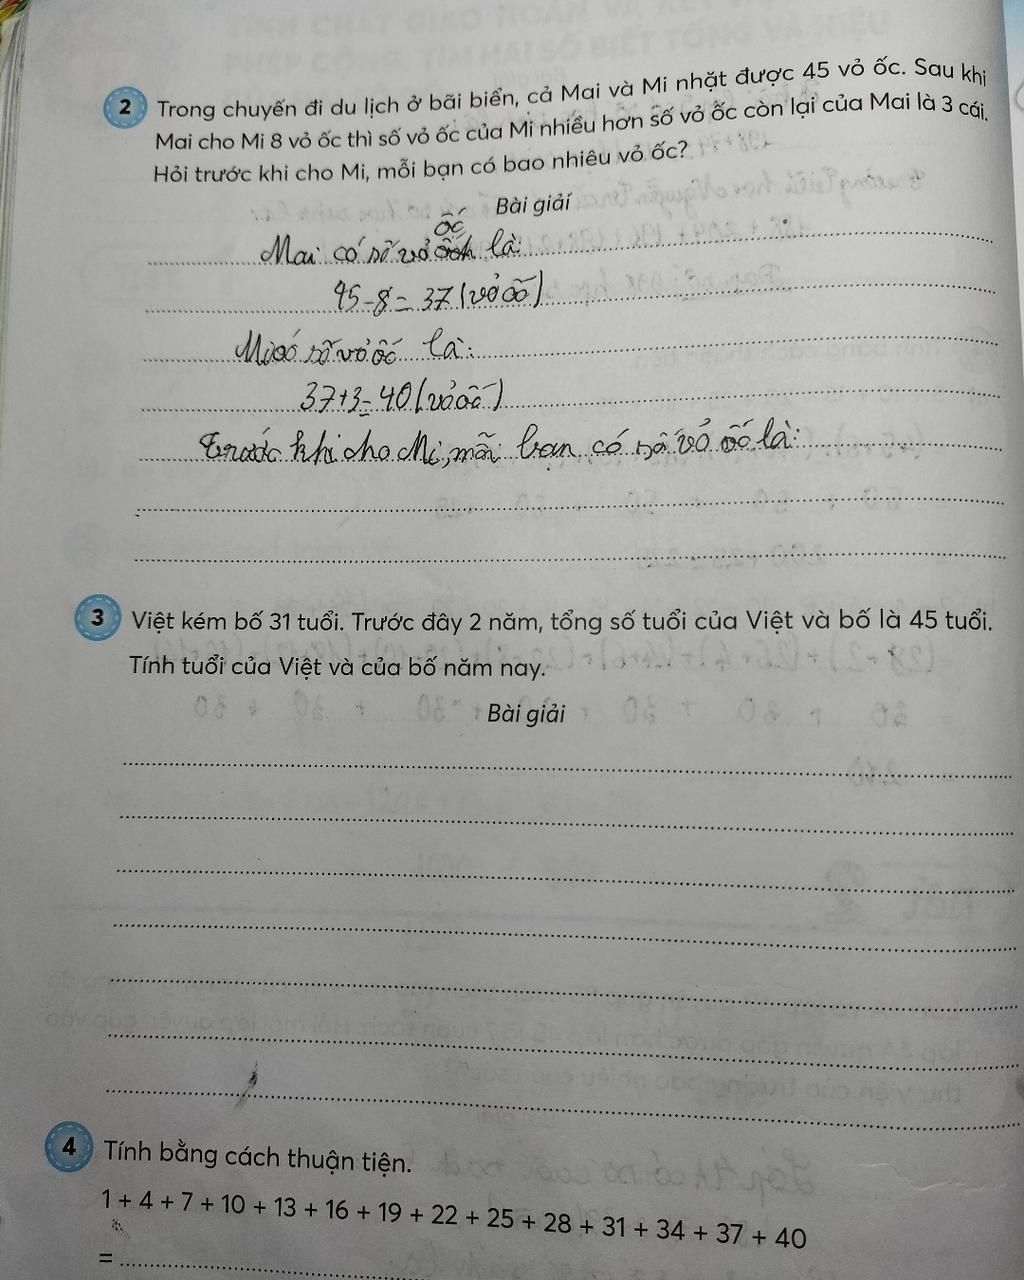 2 Trong chuyến đi du lịch ở bãi biển, cả Mai và Mi nhặt được 45 vỏ ốc. Sau khi
Mai cho Mi 8 vỏ ốc thì số vỏ ốc của Mi nhiều hơn số vỏ ốc còn lại của Mai là 3 cái.
Hỏi trước khi cho Mi, mỗi bạn có bao nhiêu vỏ ốc?
Bài giải
ốc
Mai có số vỏ là:
45-8=37(vỏ ốc)
Mi có số vỏ ốc là:
37+3=40(vỏ ốc)
Trước khi cho Mi, mỗi bạn có số vỏ ốc là:
3 Việt kém bố 31 tuổi. Trước đây 2 năm, tổng số tuổi của Việt và bố là 45 tuổi.
Tính tuổi của Việt và của bố năm nay.
Bài giải
4 Tính bằng cách thuận tiện.
1 + 4 + 7 + 10 + 13 + 16 + 19 + 22 + 25 + 28 + 31 + 34 + 37 + 40
=